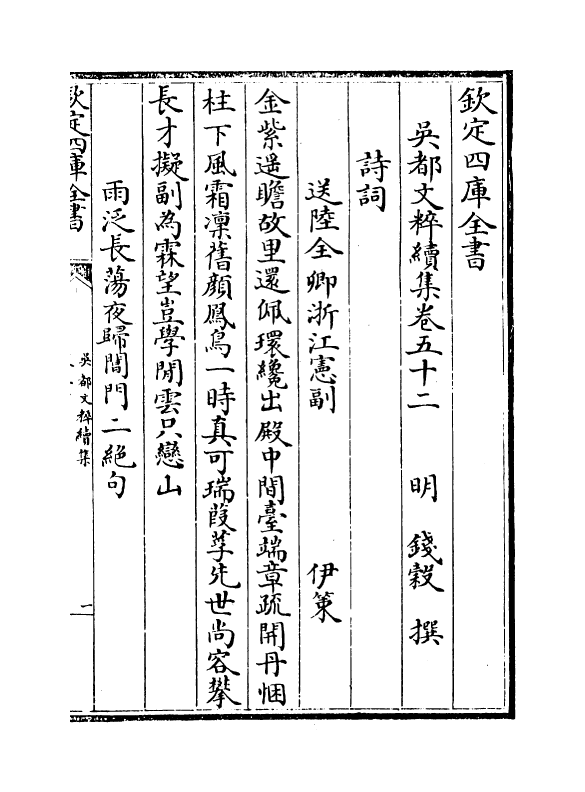 欽定四庫全書
吳都文粹續集卷五十二　明　錢穀　撰
詩詞
送陸全卿浙江憲副　伊策
金紫遥瞻故里還佩環纔出殿中間臺端章疏開丹悃
柱下風霜凛舊顔鳳鳥一時真可瑞葭莩先世尚容攀
長才擬副為霖望豈學閒雲只戀山
雨泛長蕩夜歸閶門二絶句
欽定四庫全書
吳都文粹續集
一